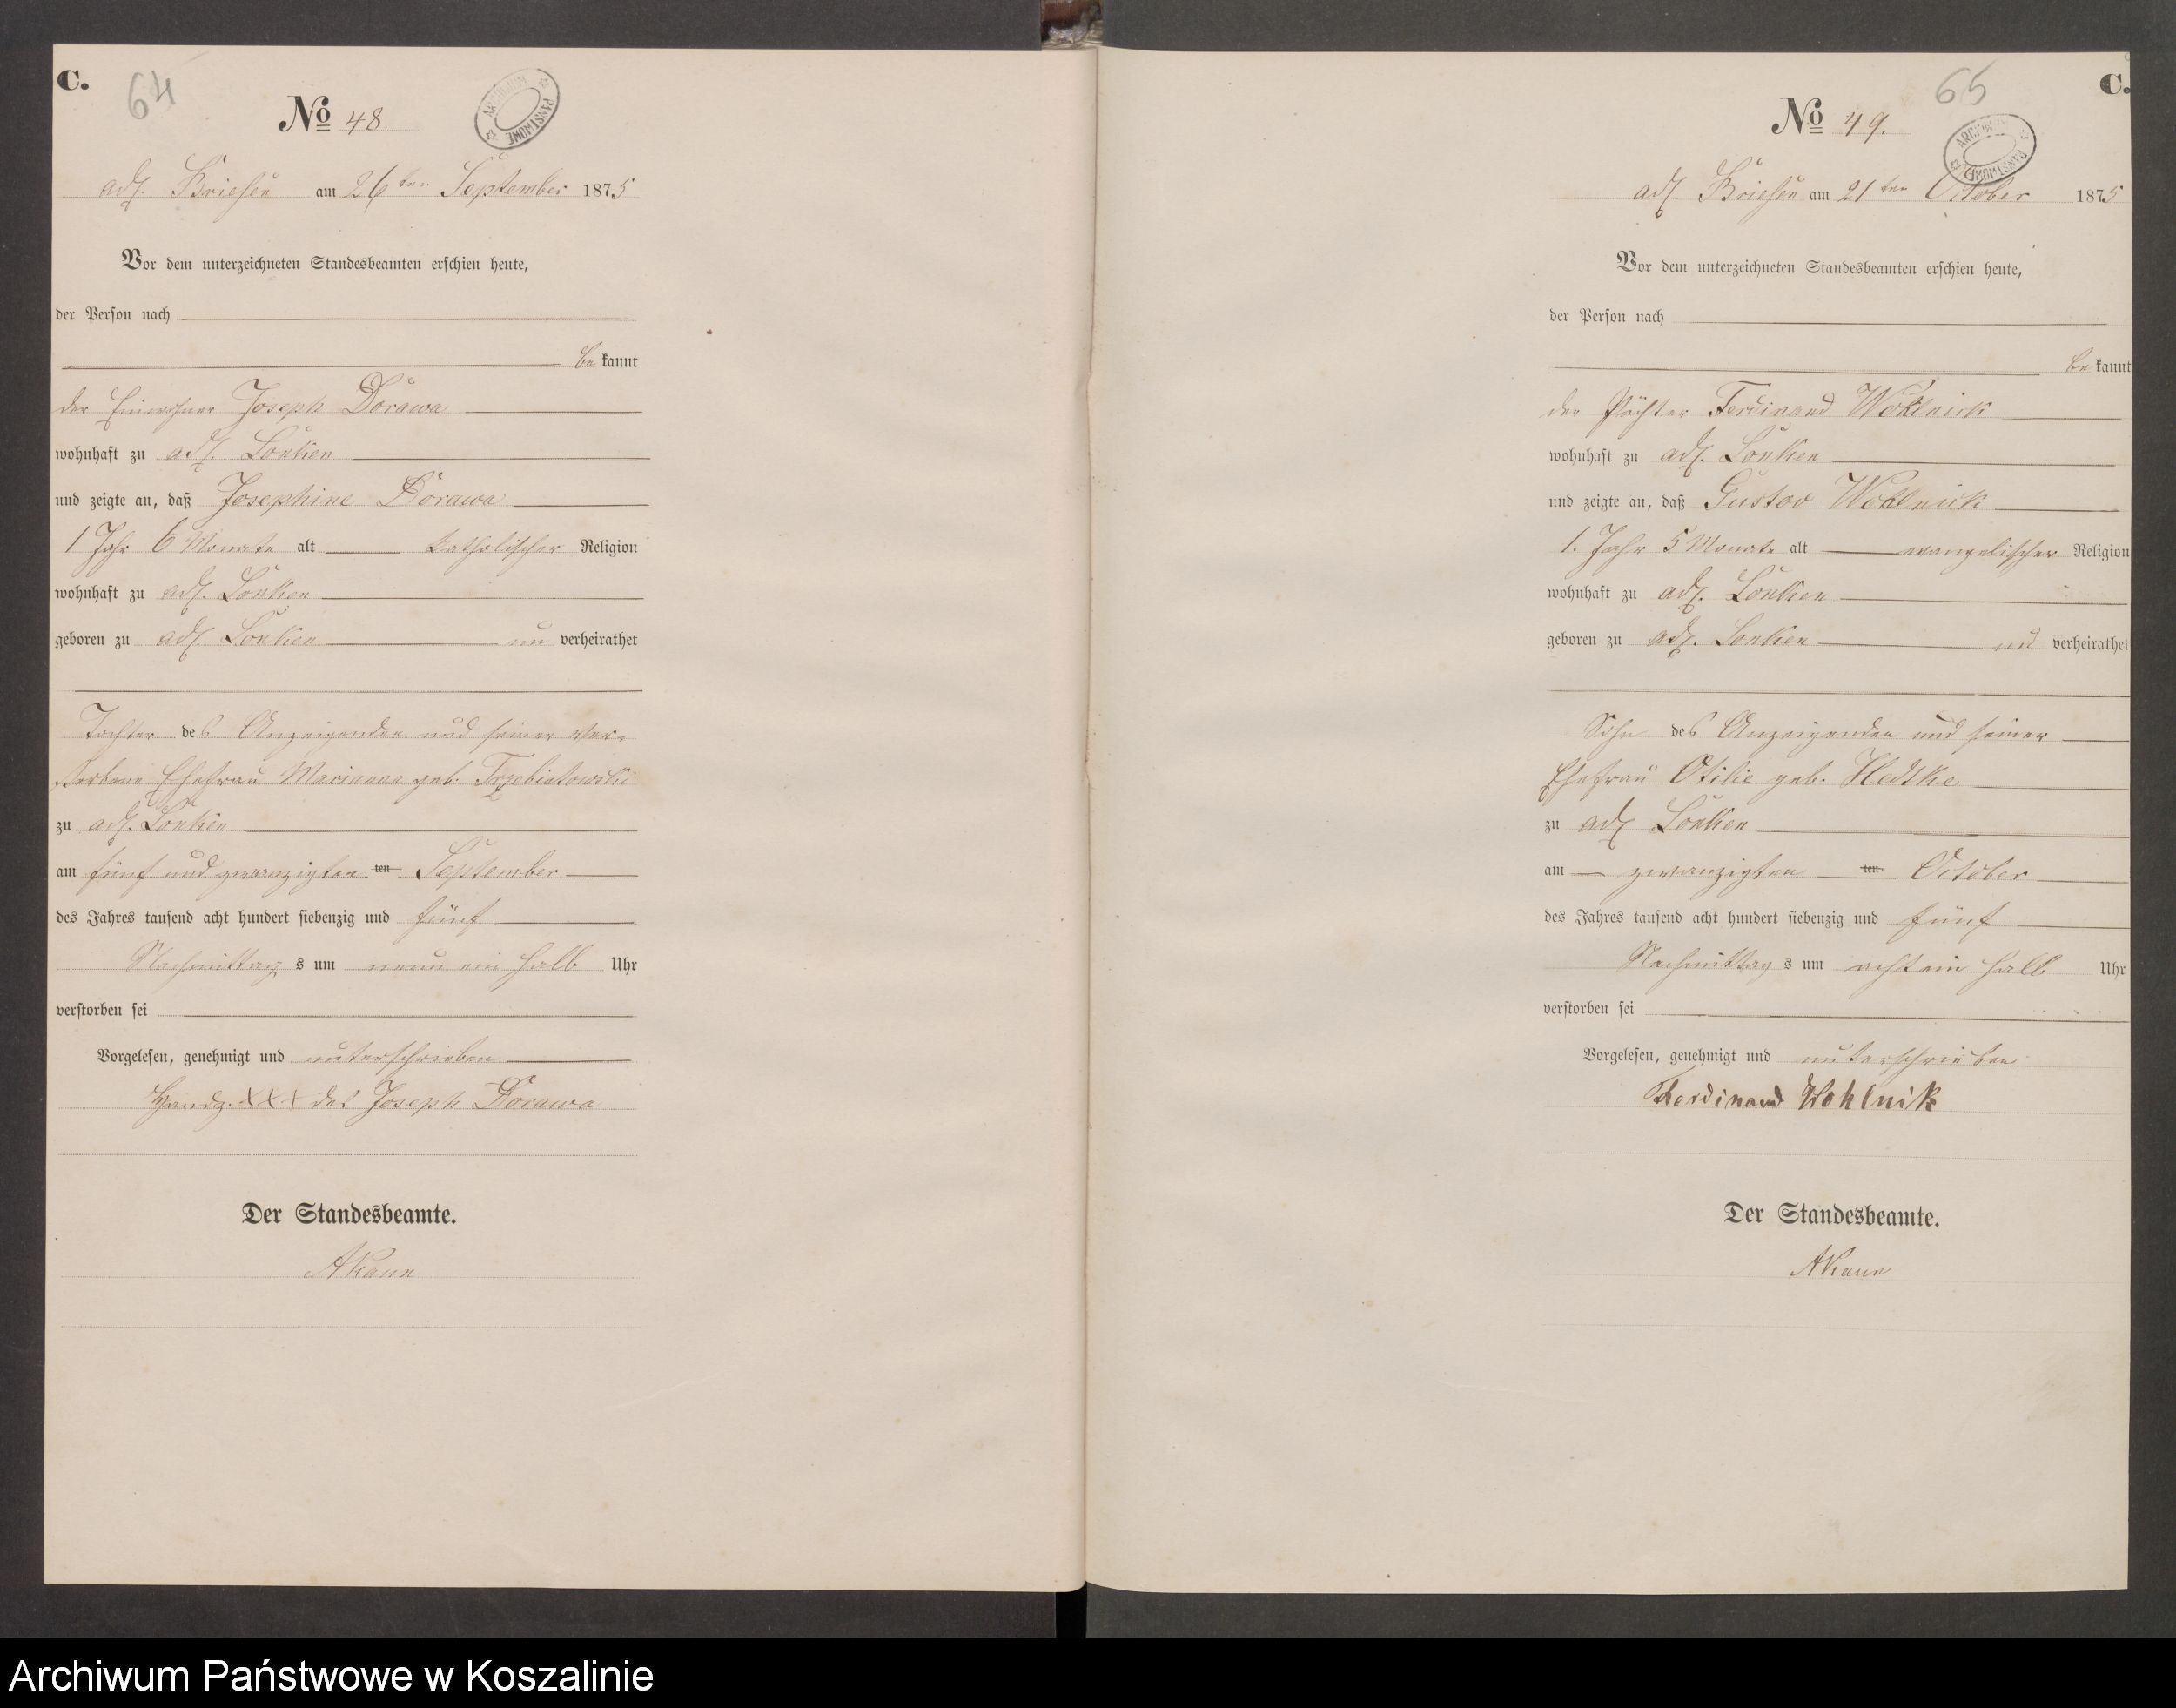 C.
64
No 48.
ARCHIWUM PAŃSTWOWE
adl. Briesen am 26ten September 1875
Vor dem unterzeichneten Standesbeamten erschien heute,
der Person nach
bekannt
der Einwohner Joseph Dorawa
wohnhaft zu adl. Lonken
und zeigte an, daß Josephine Dorawa
1 Jahr 6 Monate alt katholischer Religion
wohnhaft zu adl. Lonken
geboren zu adl. Lonken un verheirathet
Tochter des Anzeigenden und seiner ver-
storbene Ehefrau Marianna geb. Trzebiatowski
zu adl. Lonken
am fünf und zwanzigten ten September
des Jahres tausend acht hundert siebenzig und fünf
Nachmittags um neun ein halb Uhr
verstorben sei
Vorgelesen, genehmigt und unterschrieben
Handz. XXX des Joseph Dorawa
Der Standesbeamte.
AKaun
65
C.
No 49.
ARCHIWUM PAŃSTWOWE
adl. Briesen am 21ten October 1875
Vor dem unterzeichneten Standesbeamten erschien heute,
der Person nach
bekannt
der Pächter Ferdinand Wohlnick
wohnhaft zu adl. Lonken
und zeigte an, daß Gustav Wohlnick
1. Jahr 5 Monate alt evangelischer Religion
wohnhaft zu adl. Lonken
geboren zu adl. Lonken un verheirathet
Sohn des Anzeigenden und seiner
Ehefrau Otilie geb. Hedtke
zu adl Lonken
am zwanzigten ten October
des Jahres tausend acht hundert siebenzig und fünf
Nachmittags um acht ein halb Uhr
verstorben sei
Vorgelesen, genehmigt und unterschrieben
Ferdinand Wohlnik
Der Standesbeamte.
AKaun
Archiwum Państwowe w Koszalinie